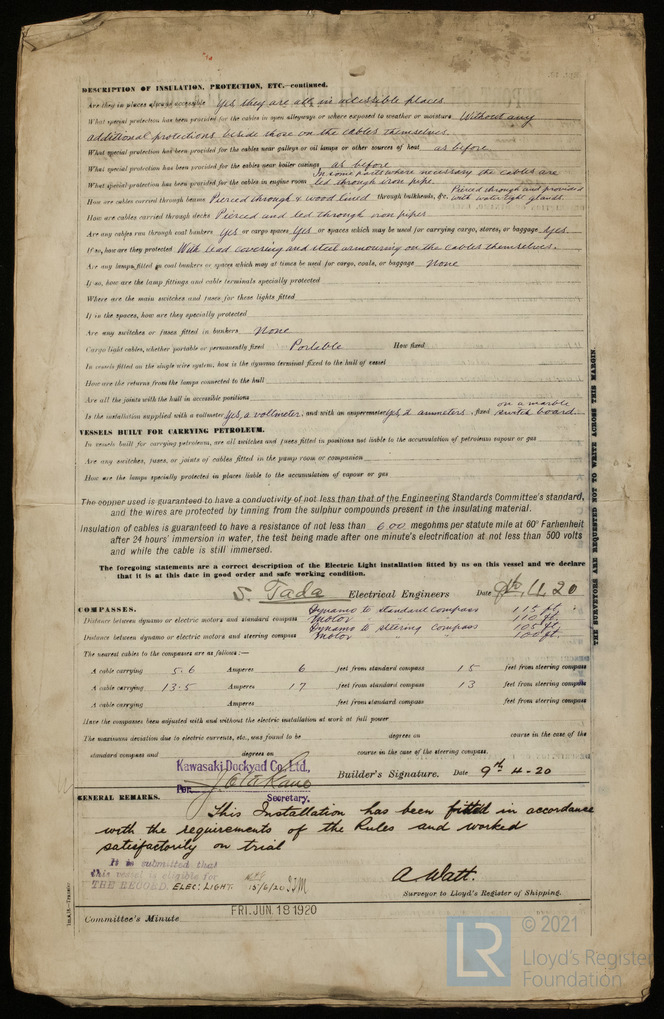 DESCRIPTION OF INSULATION, PROTECTION, ETC.—continued.
Are they in places always accessible Yes they are all in accessible places
What special protection has been provided for the cables in open alleyways or where exposed to weather or moisture Without any
additional protections beside those on the cables themselves.
What special protection has been provided for the cables near galleys or oil lamps or other sources of heat as before
What special protection has been provided for the cables near boiler casings as before
What special protection has been provided for the cables in engine room In some parts where necessary the cables are led through iron pipe.
How are cables carried through beams Pierced through & wood lined through bulkheads, &c. Pierced through and provided with watertight glands.
How are cables carried through decks Pierced and led through iron pipes
Are any cables run through coal bunkers Yes or cargo spaces Yes or spaces which may be used for carrying cargo, stores, or baggage Yes.
If so, how are they protected With lead covering and steel armouring on the cables themselves.
Are any lamps fitted in coal bunkers or spaces which may at times be used for cargo, coals, or baggage None
If so, how are the lamp fittings and cable terminals specially protected
Where are the main switches and fuses for these lights fitted
If in the spaces, how are they specially protected
Are any switches or fuses fitted in bunkers None
Cargo light cables, whether portable or permanently fixed Portable How fixed
In vessels fitted on the single wire system, how is the dynamo terminal fixed to the hull of vessel
How are the returns from the lamps connected to the hull
Are all the joints with the hull in accessible positions
Is the installation supplied with a voltmeter Yes, a voltmeter, and with an amperemeter Yes, 2 ammeters, fixed on a marble switch board.
VESSELS BUILT FOR CARRYING PETROLEUM.
In vessels built for carrying petroleum, are all switches and fuses fitted in positions not liable to the accumulation of petroleum vapour or gas
Are any switches, fuses, or joints of cables fitted in the pump room or companion
How are the lamps specially protected in places liable to the accumulation of vapour or gas
The copper used is guaranteed to have a conductivity of not less than that of the Engineering Standards Committee's standard,
and the wires are protected by tinning from the sulphur compounds present in the insulating material.
Insulation of cables is guaranteed to have a resistance of not less than 600 megohms per statute mile at 60° Farhenheit
after 24 hours' immersion in water, the test being made after one minute's electrification at not less than 500 volts
and while the cable is still immersed.
The foregoing statements are a correct description of the Electric Light installation fitted by us on this vessel and we declare
that it is at this date in good order and safe working condition.
S. Tada Electrical Engineers Date 9th, 4, 20
COMPASSES.
Distance between dynamo or electric motors and standard compass Dynamo to standard compass 115 ft.
Motor " " 110 ft.
Distance between dynamo or electric motors and steering compass Dynamo to steering compass 105 ft.
Motor " " 100 ft.
The nearest cables to the compasses are as follows:—
A cable carrying 5.6 Amperes 6 feet from standard compass 15 feet from steering compass
A cable carrying 13.5 Amperes 17 feet from standard compass 13 feet from steering compass
A cable carrying Amperes feet from standard compass feet from steering compass
Have the compasses been adjusted with and without the electric installation at work at full power
The maximum deviation due to electric currents, etc., was found to be degrees on course in the case of the
standard compass and degrees on course in the case of the steering compass.
Kawasaki Dockyad Co. Ltd.,
Per Secretary,
Builder's Signature. Date 9th 4-20
GENERAL REMARKS.
This Installation has been fitted in accordance
with the requirements of the Rules and worked
satisfactorily on trial
It is submitted that
this vessel is eligible for
THE RECORD. ELEC: LIGHT. 15/6/20
A Watt.
Surveyor to Lloyd's Register of Shipping.
Committee's Minute FRI. JUN. 18 1920
THE SURVEYORS ARE REQUESTED NOT TO WRITE ACROSS THIS MARGIN.
LR © 2021
Lloyd's Register
Foundation